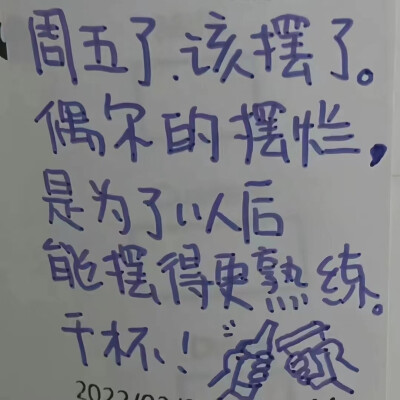 周五了、该摆了。
偶尔的摆烂,
是为了以后
能摆得更熟练。
干杯!